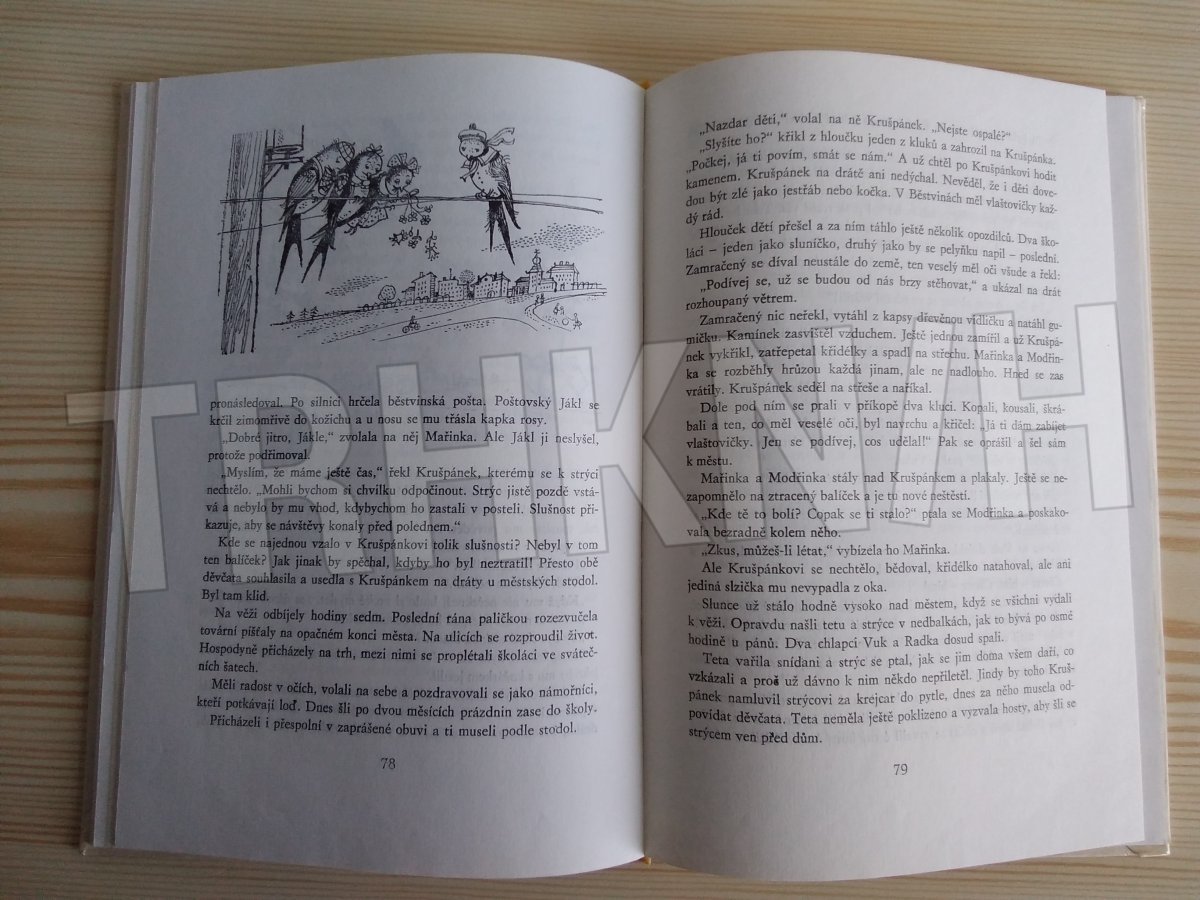 pronásledoval. Po silnici hrčela běstvinská pošta. Poštovský Jákl se
krčil zimomřivě do kožichu a u nosu se mu třásla kapka rosy.
„Dobré jitro, Jákle,“ zvolala na něj Mařinka. Ale Jákl ji neslyšel,
protože podřimoval.
„Myslím, že máme ještě čas,“ řekl Krušpánek, kterému se k strýci
nechtělo. „Mohli bychom si chvilku odpočinout. Strýc jistě pozdě vstá-
vá a nebylo by mu vhod, kdybychom ho zastali v posteli. Slušnost při-
kazuje, aby se návštěvy konaly před polednem.“
Kde se najednou vzalo v Krušpánkovi tolik slušnosti? Nebyl v tom
ten balíček? Jak jinak by spěchal, kdyby ho byl neztratil! Přesto obě
děvčata souhlasila a usedla s Krušpánkem na dráty u městských stodol.
Byl tam klid.
Na věži odbíjely hodiny sedm. Poslední rána paličkou rozezvučela
tovární píšťaly na opačném konci města. Na ulicích se rozproudil život.
Hospodyně přicházely na trh, mezi nimi se proplétali školáci ve sváteč-
ních šatech.
Měli radost v očích, volali na sebe a pozdravovali se jako námořníci,
kteří potkávají loď. Dnes šli po dvou měsících prázdnin zase do školy.
Přicházeli i přespolní v zaprášené obuvi a ti museli podle stodol.
78
„Nazdar děti,“ volal na ně Krušpánek. „Nejste ospalé?“
„Slyšíte ho?“ křikl z hloučku jeden z kluků a zahrozil na Krušpánka.
„Počkej, já ti povím, smát se nám.“ A už chtěl po Krušpánkovi hodit
kamenem. Krušpánek na drátě ani nedýchal. Nevěděl, že i děti dove-
dou být zlé jako jestřáb nebo kočka. V Běstvinách měl vlaštovičky kaž-
dý rád.
Hlouček dětí přešel a za ním táhlo ještě několik opozdilců. Dva ško-
láci – jeden jako sluníčko, druhý jako by se pelyňku napil – poslední.
Zamračený se díval neustále do země, ten veselý měl oči všude a řekl:
„Podívej se, už se budou od nás brzy stěhovat,“ a ukázal na drát
rozhoupaný větrem.
Zamračený nic neřekl, vytáhl z kapsy dřevěnou vidličku a natáhl gu-
mičku. Kamínek zasvištěl vzduchem. Ještě jednou zamířil a už Krušpá-
nek vykřikl, zatřepetal křidélky a spadl na střechu. Mařinka a Modřin-
ka se rozběhly hrůzou každá jinam, ale ne nadlouho. Hned se zas
vrátily. Krušpánek seděl na střeše a naříkal.
Dole pod ním se prali v příkopě dva kluci. Kopali, kousali, škrá-
bali a ten, co měl veselé oči, byl navrchu a křičel: „Já ti dám zabíjet
vlaštovičky. Jen se podívej, cos udělal!“ Pak se oprášil a šel sám
k městu.
Mařinka a Modřinka stály nad Krušpánkem a plakaly. Ještě se ne-
zapomnělo na ztracený balíček a je tu nové neštěstí.
„Kde tě to bolí? Copak se ti stalo?“ ptala se Modřinka a poskako-
vala bezradně kolem něho.
„Zkus, můžeš-li létat,“ vybízela ho Mařinka.
Ale Krušpánkovi se nechtělo, bědoval, křidélko natahoval, ale ani
jediná slzička mu nevypadla z oka.
Slunce už stálo hodně vysoko nad městem, když se všichni vydali
k věži. Opravdu našli tetu a strýce v nedbalkách, jak to bývá po osmé
hodině u pánů. Dva chlapci Vuk a Radka dosud spali.
Teta vařila snídani a strýc se ptal, jak se jim doma všem daří, co
vzkázali a proč už dávno k nim někdo nepřiletěl. Jindy by toho Kruš-
pánek namluvil strýcovi za krejcar do pytle, dnes za něho musela od-
povídat děvčata. Teta neměla ještě poklizeno a vyzvala hosty, aby šli se
strýcem ven před dům.
79
TRHKNIH